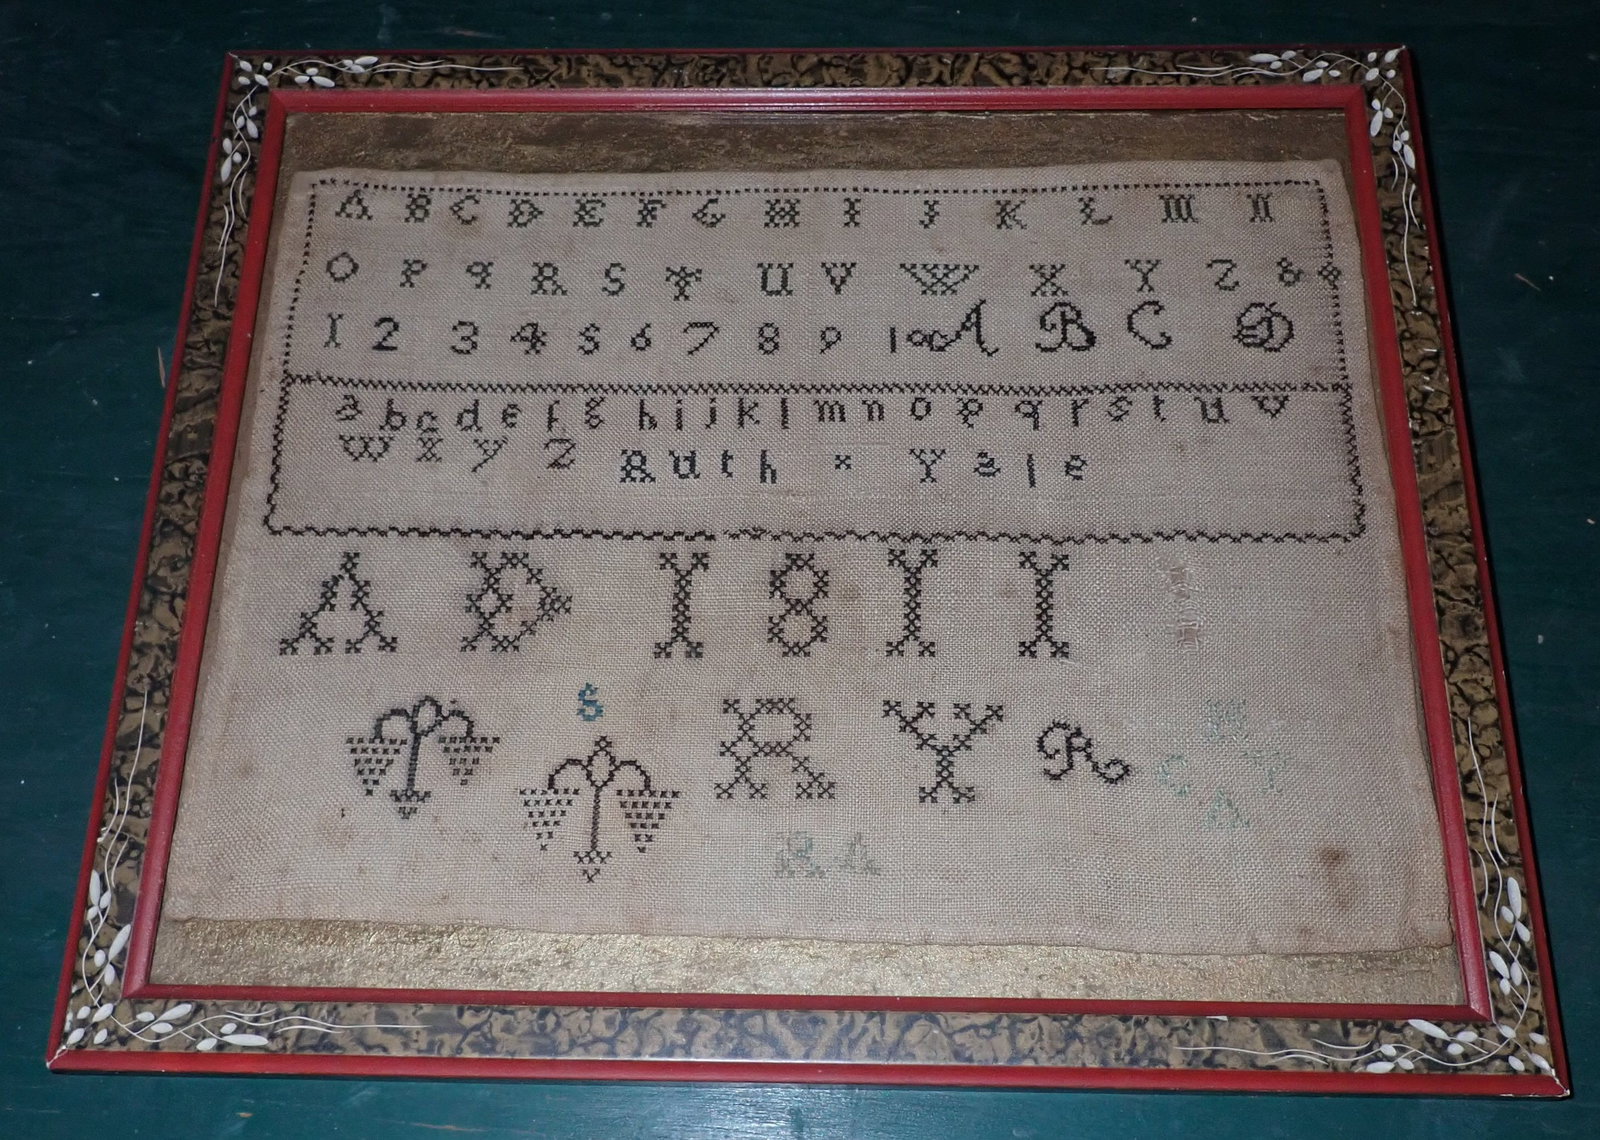 A B C D E F G H I J K L M N
O P q R S T U V W X Y Z &
1 2 3 4 5 6 7 8 9 100 A B C D
a b c d e f g h i j k l m n o p q r s t u v
w x y z Ruth × Yale
A D 1 8 1 1
S
R Y R
R A